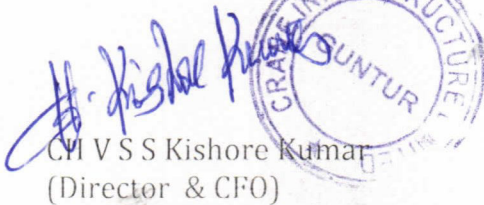 H. Kishore Kumar
GUNTUR
CH V S S Kishore Kumar
(Director & CFO)